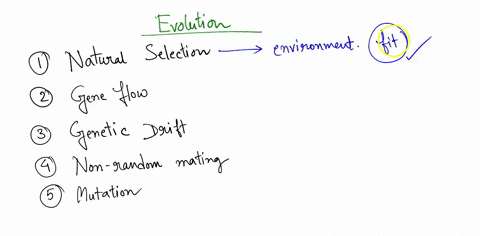 Evolution
① Natural Selection → environment. fit ✓
② Gene flow
③ Genetic Drift
④ Non-random mating
⑤ Mutation